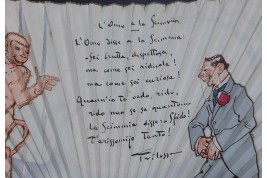 L'Omo e la Scimmia
L'Omo disse a la Scimmia:
- Sei brutta, dispettosa:
ma come sei ridicola!
ma come sei curiosa!
Quann'io te vedo, rido,
rido nun se sa quanto...
La Scimmia disse: Sfido!
T'arissomijo tanto!
Trilussa